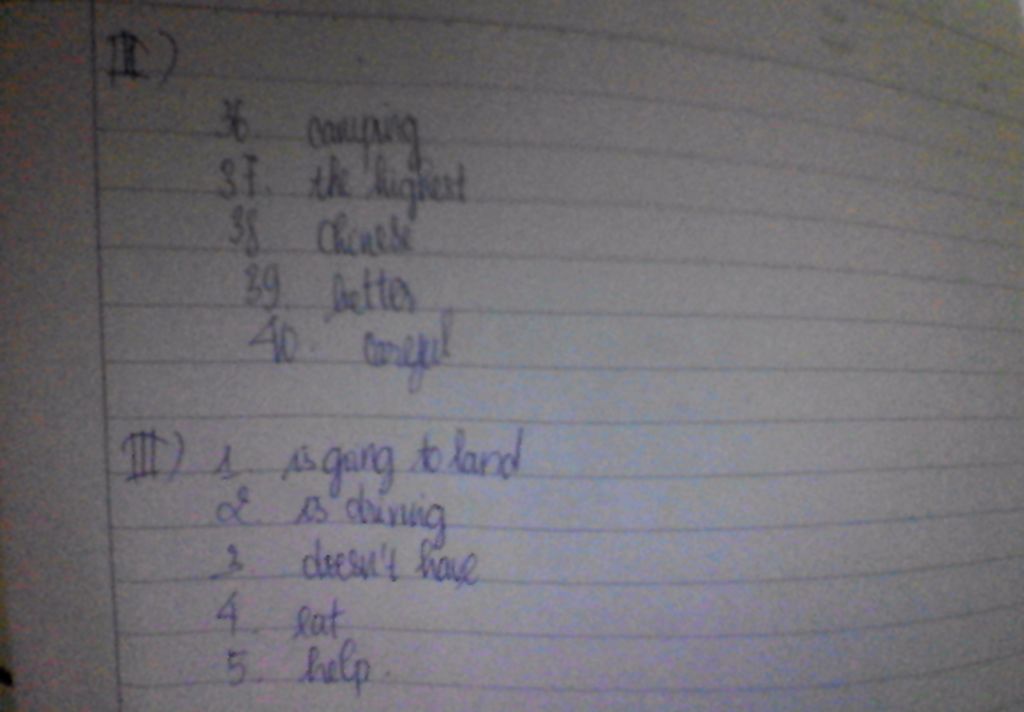 II)
36. camping
37. the highest
38 Chinese
39. better
40. careful
III) 1. is going to land
2. is driving
3. doesn't have
4. eat
5. help.